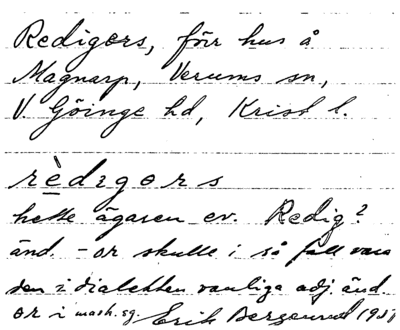 Redigers, förr hus å
Magnarp, Verums sn,
V. Göinge hd, Krist l.
rèdigərs
hette ägaren ev. Redig?
änd. -or skulle i så fall vara
den i dialekten vanliga adj. änd.
or i mask. sg. Erik